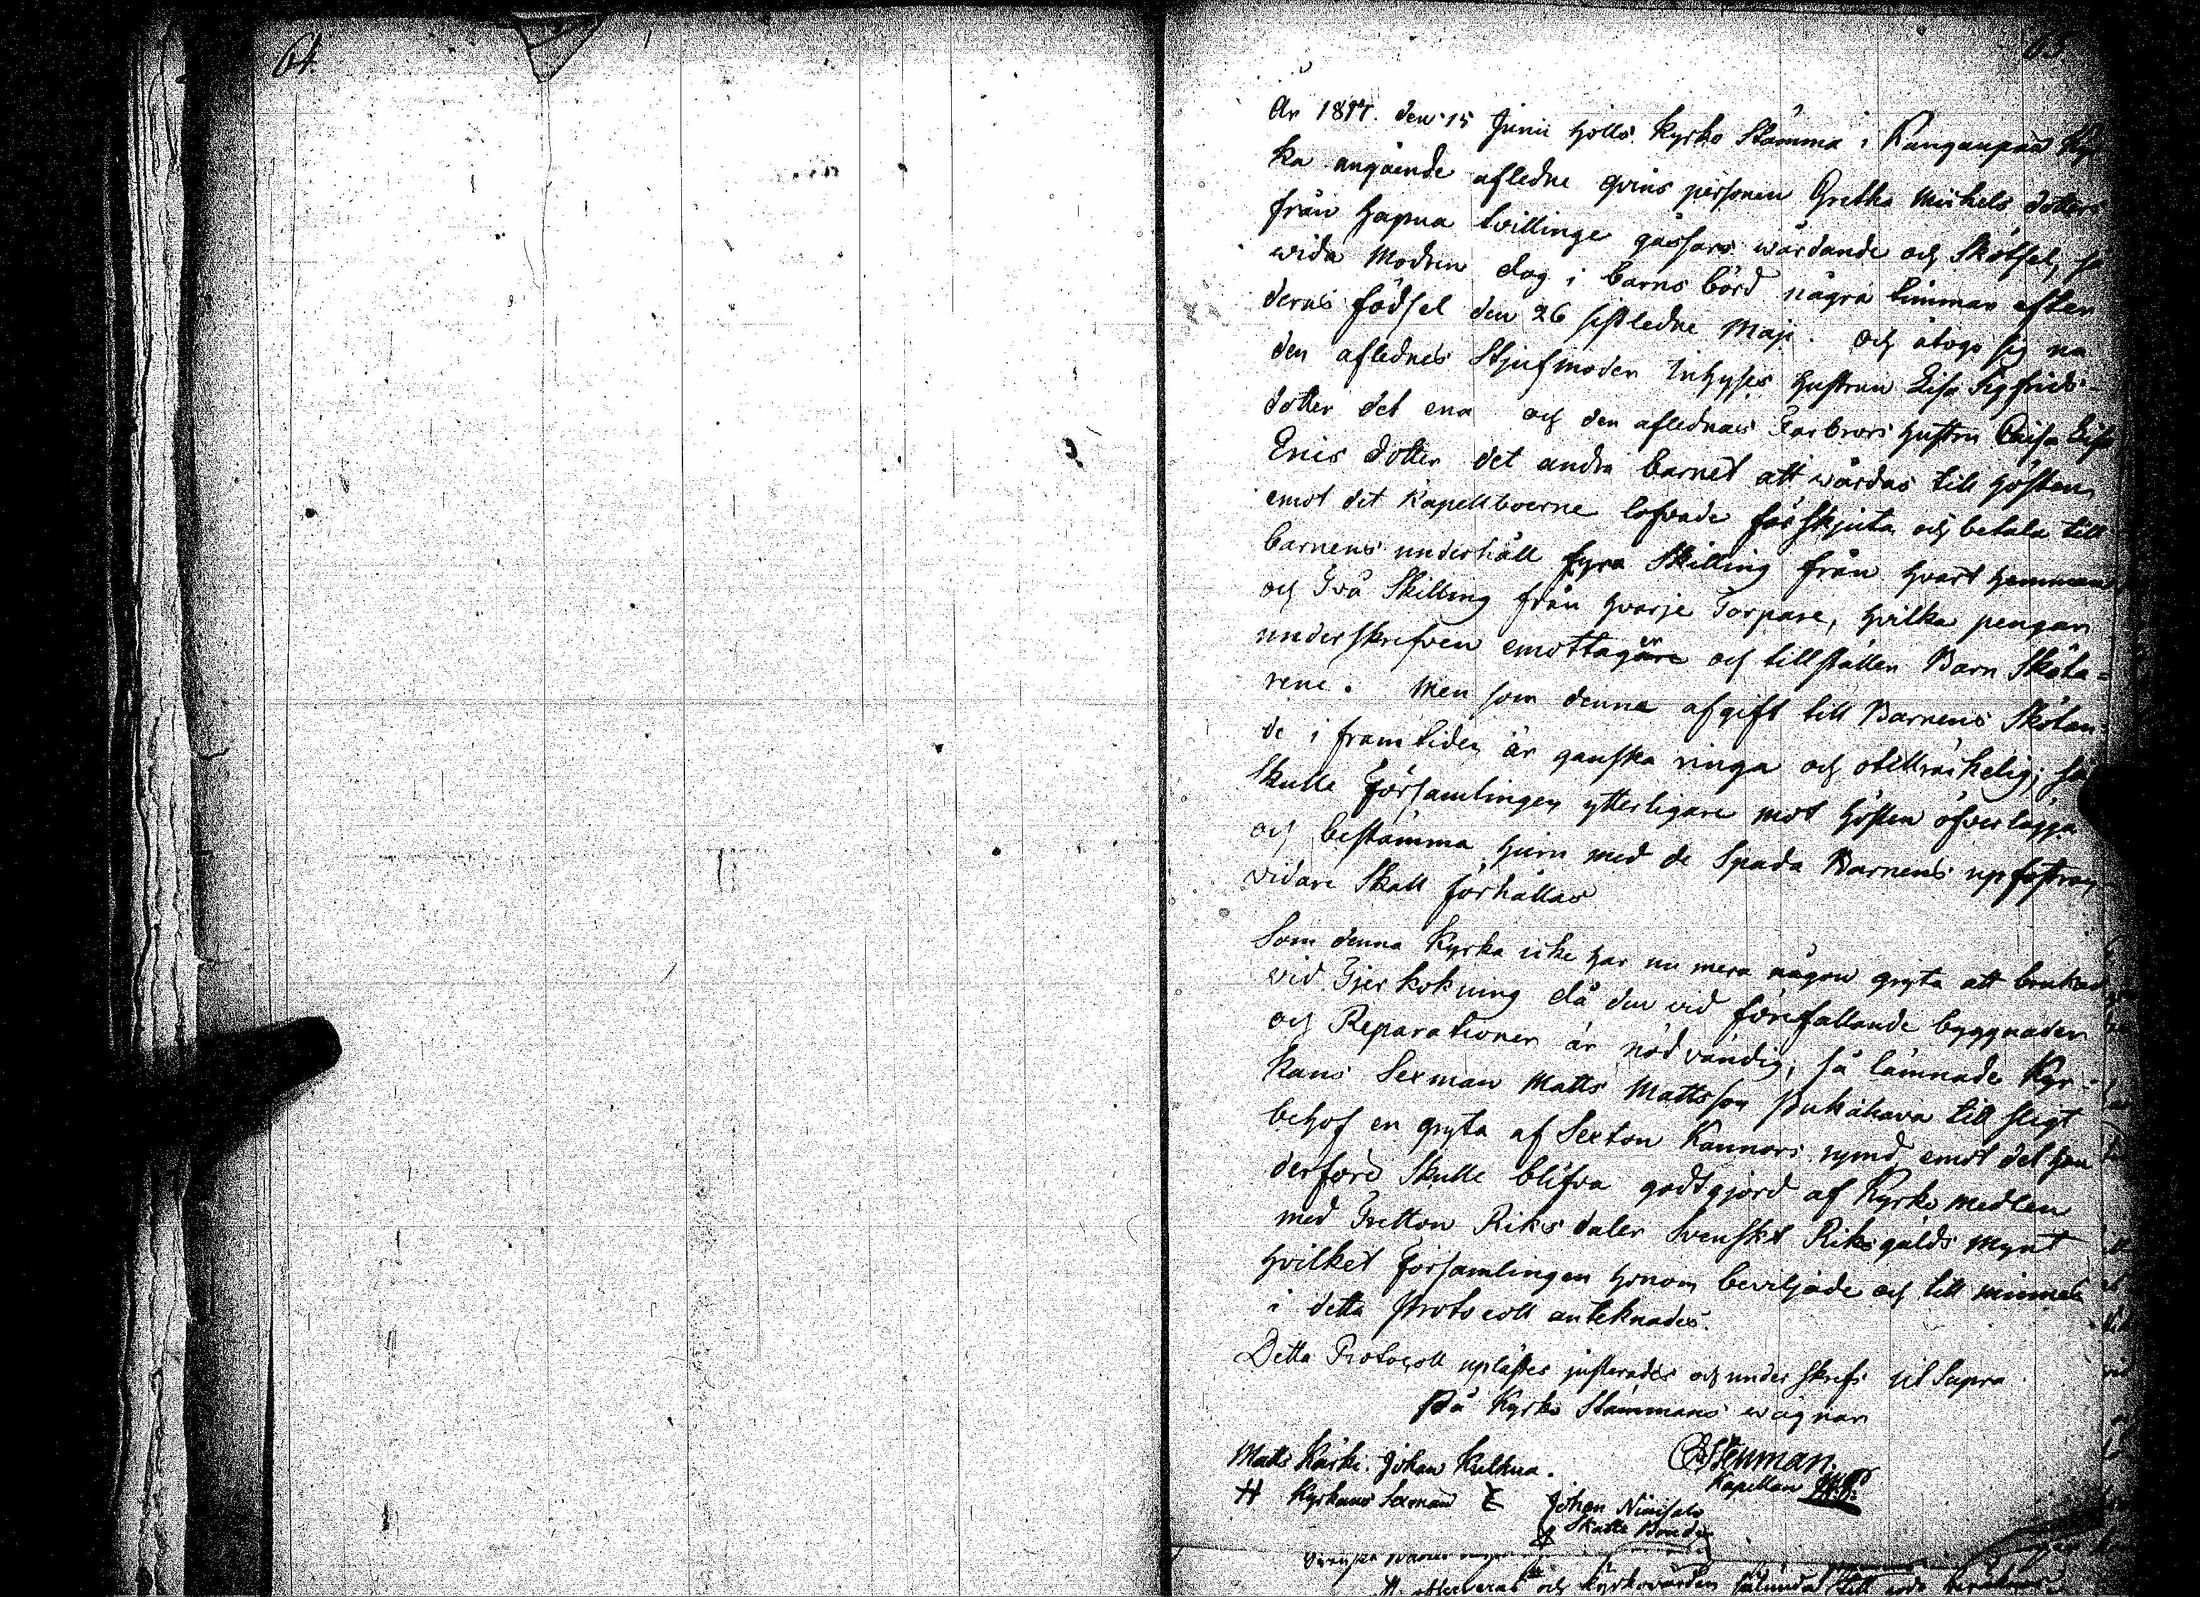 64.
63.
År 18 den 15 Junii hölls Kyrko Stämma i Kangaupää Kyr
ka angående afledne qvins personen Gretha Michels dotters
från Hapua tvillinge gåssars wårdande och Skötsel, så
wida Modren dog i barns börd några timmar efter
deras födsel den 26 sistledne Maji. och åtogo sig nu
den aflednes Stjufmoder Inhyses hustrun Lisa Sigfrids-
dotter det ena och den aflednas Farbrors hustru Caisa Lisa
Erics dotter det andra barnet att wårdas till hösten,
emot det Kapellboerne lofvade förskjuta och betala till
barnens underhåll fyra Skilling från hvart hemman
och Två Skilling från hvarje Torpare, hvilka pengar
underskrefven emottager och tillställer Barn Sköta=
rene. Men som denna afgift till Barnens Skötan-
de i framtiden är ganska ringa och otillräckelig; så
Skulle Församlingen ytterligare mot hösten öfverlägga
och bestämma, huru med de Spada Barnens upfostran
vidare Skall förhållas
Som denna Kyrka icke har nu mera någon gryta att brukas
vid Tjerkokning då den vid förefallande byggnader
och Reparationer är nödvändig; så lämnade Kyr-
kans Sexman Matts Mattsson till sligt
behof en gryta af Sexton Kannors rymd emot det han
derföre Skulle blifva godtgjord af Kyrko medlen
med Tretton Riksdaler Svenskt Riksgälds Mynt
hvilket Församlingen honom beviljade och till minnes
i detta Protocoll anteknades.
Detta Protocoll uplästes justerades och underskrefs ut Supra.
På Kyrko Stämmans wägnar
Matts Kaski. Johan Kulkua. Stenman.
Kapellan
Kyrkans Sexman Johan Niinisalo
Skatte Bonde
och Kyrkovärden sålunda till